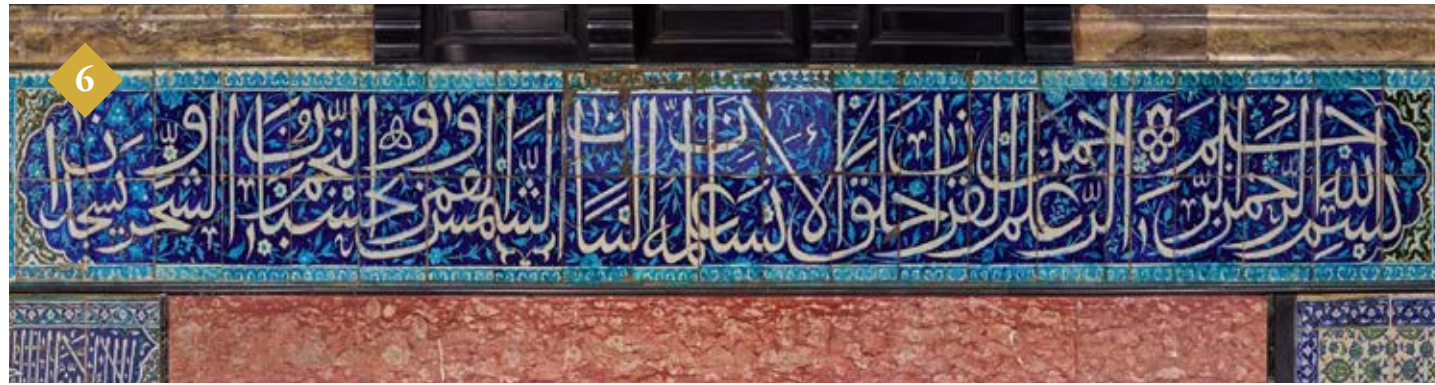 6
بسم الله الرحمن الرحيم الرحمن علم القرآن خلق الإنسان علمه البيان الشمس والقمر بحسبان والنجم والشجر يسجدان